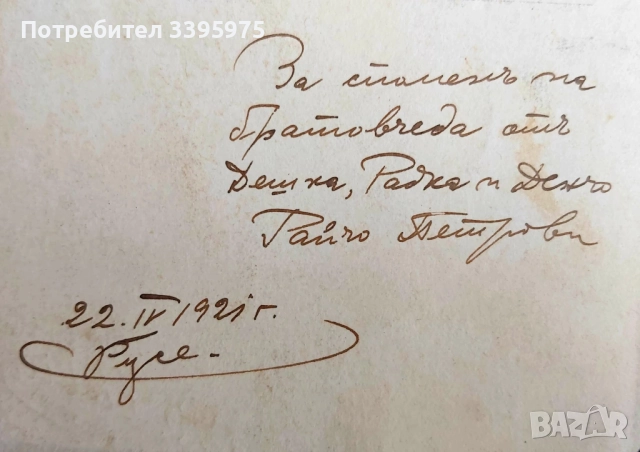 Потребител 3395975
За споменъ на
братовчеда отъ
Дешка, Радка и Денчо
Райчо Петрови
22. IV 1921 г.
Русе.
BAZAR